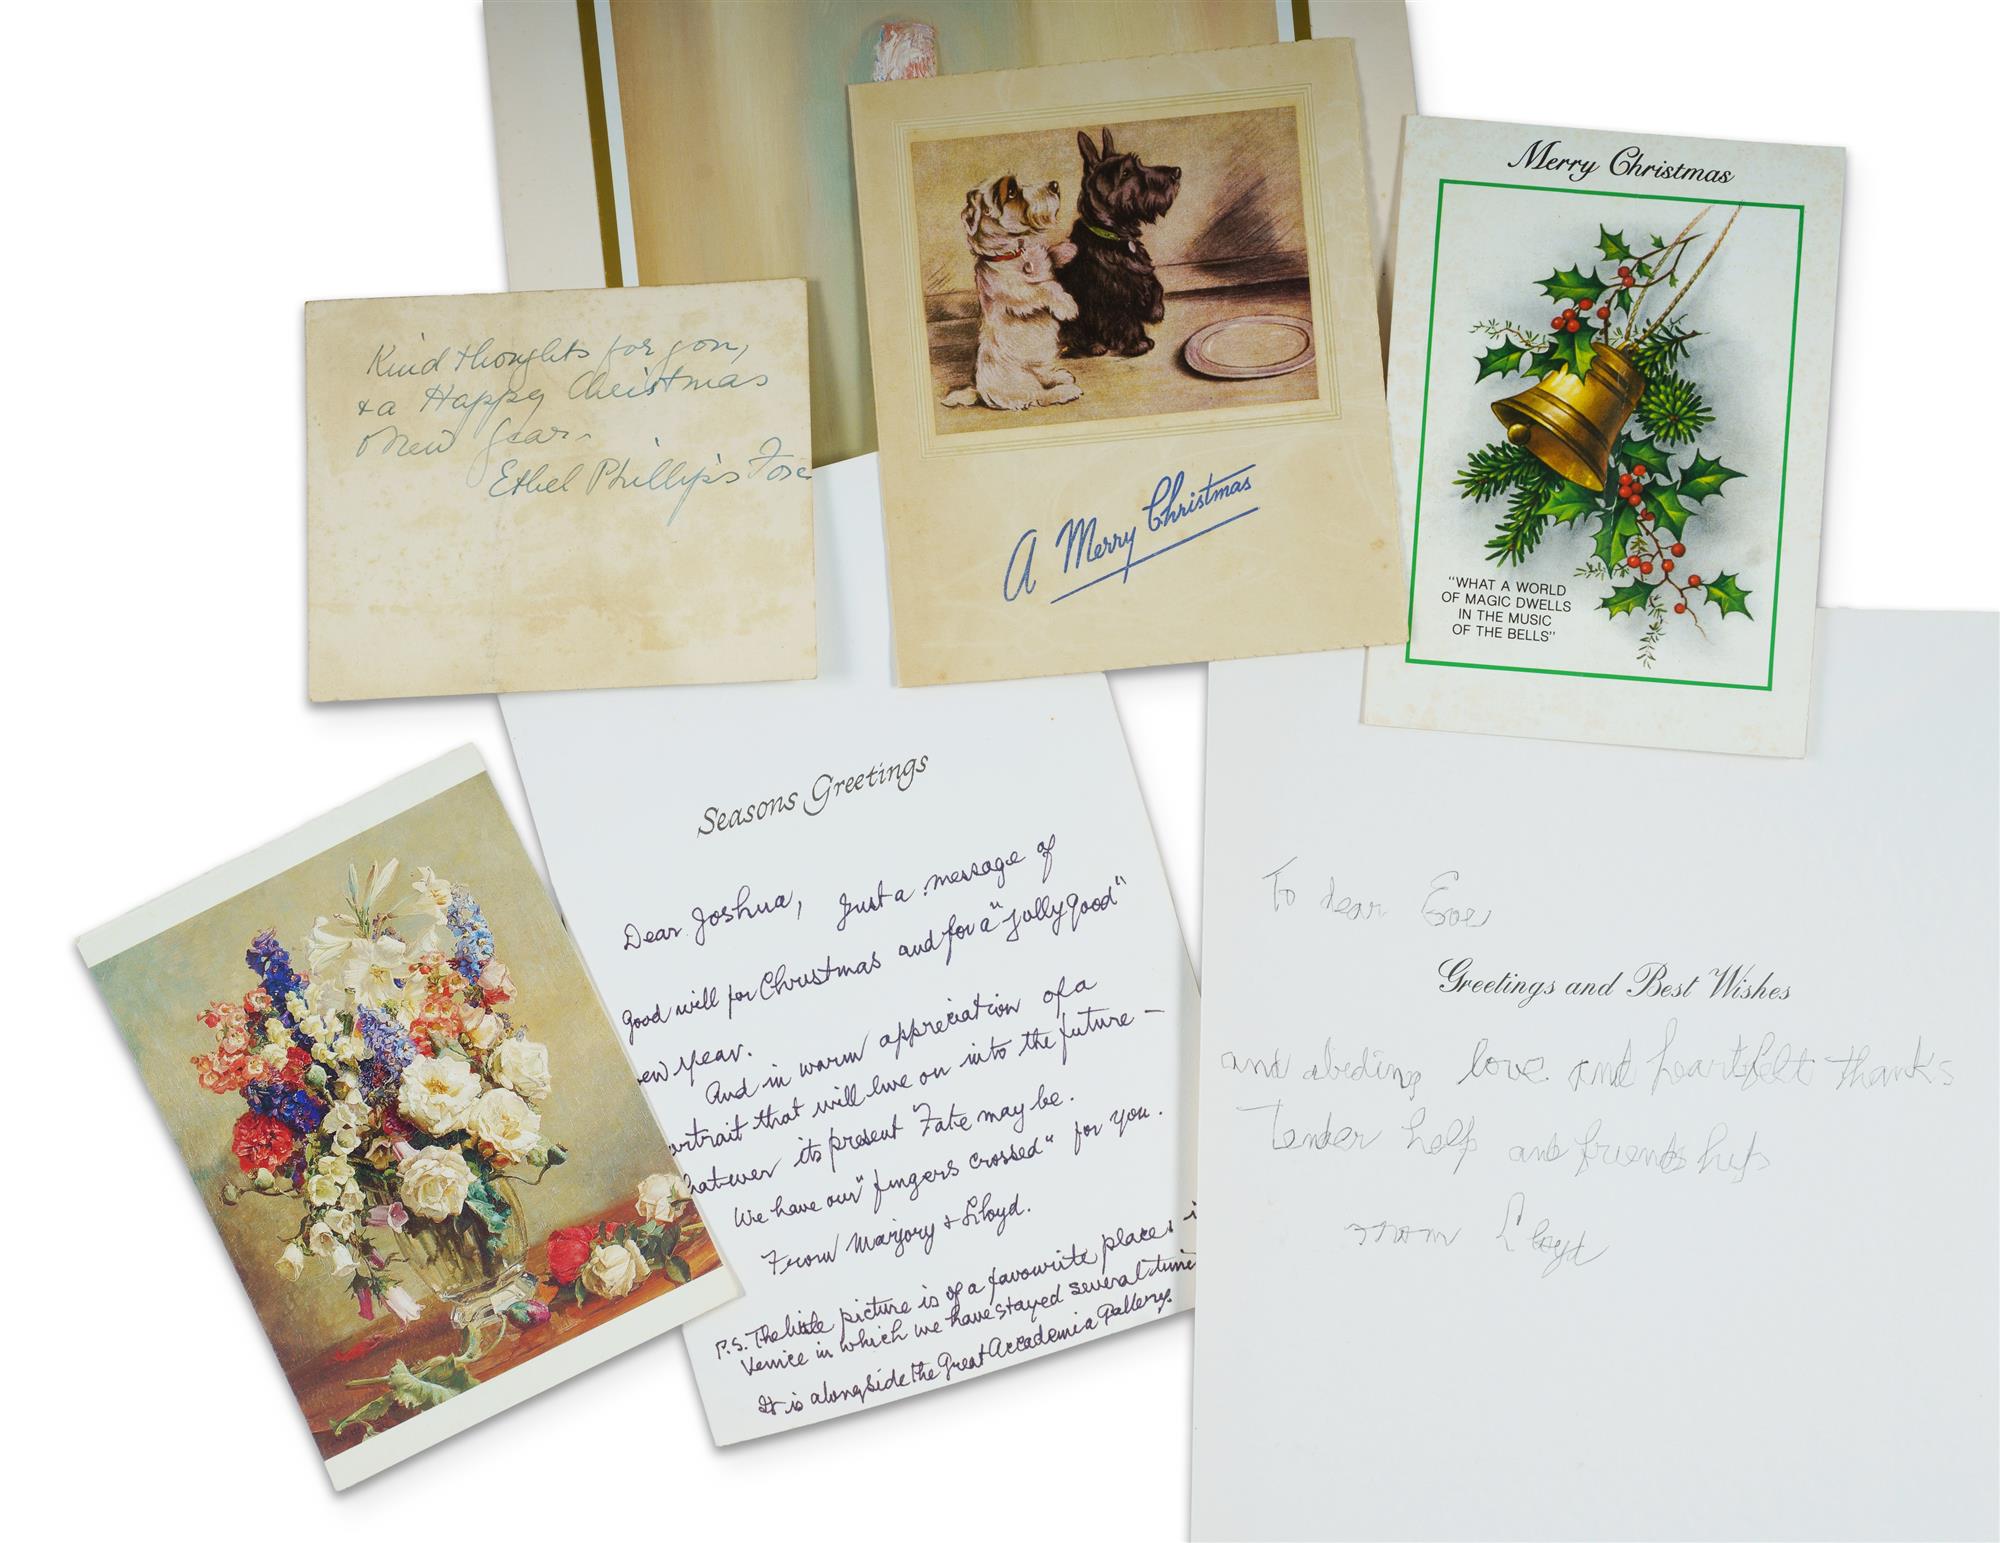 Kind thoughts for you,
& a Happy Christmas
& New Year.
Ethel Phillips Fox
A Merry Christmas
Merry Christmas
"WHAT A WORLD
OF MAGIC DWELLS
IN THE MUSIC
OF THE BELLS"
Seasons Greetings
Dear Joshua, Just a message of
good will for Christmas and for a "jolly good"
ew year.
And in warm appreciation of a
ortrait that will live on into the future —
hatever its present Fate may be.
We have our "fingers crossed" for you.
From Marjory & Lloyd.
P.S. The little picture is of a favourite place i
Venice in which we have stayed several time
It is alongside the Great Accademia Gallery.
To dear
Greetings and Best Wishes
and abiding love and heartfelt thanks
Tender help and friendship
from Lloyd